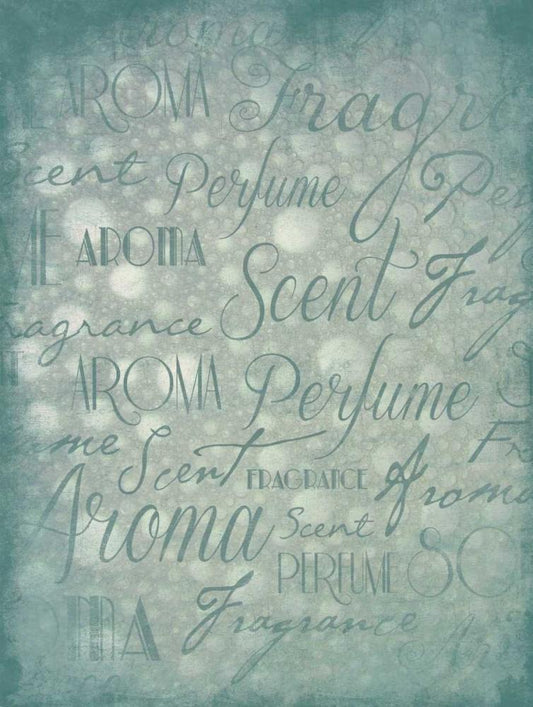 Aroma
AROMA Fragr
cent Perfume Per
ME AROMA Scent Frag
ragrance
AROMA Perfume
ume Scent FRAGRANCE Aroma Fr
Aroma Scent
PERFUME SC
OMA Fragrance Ar